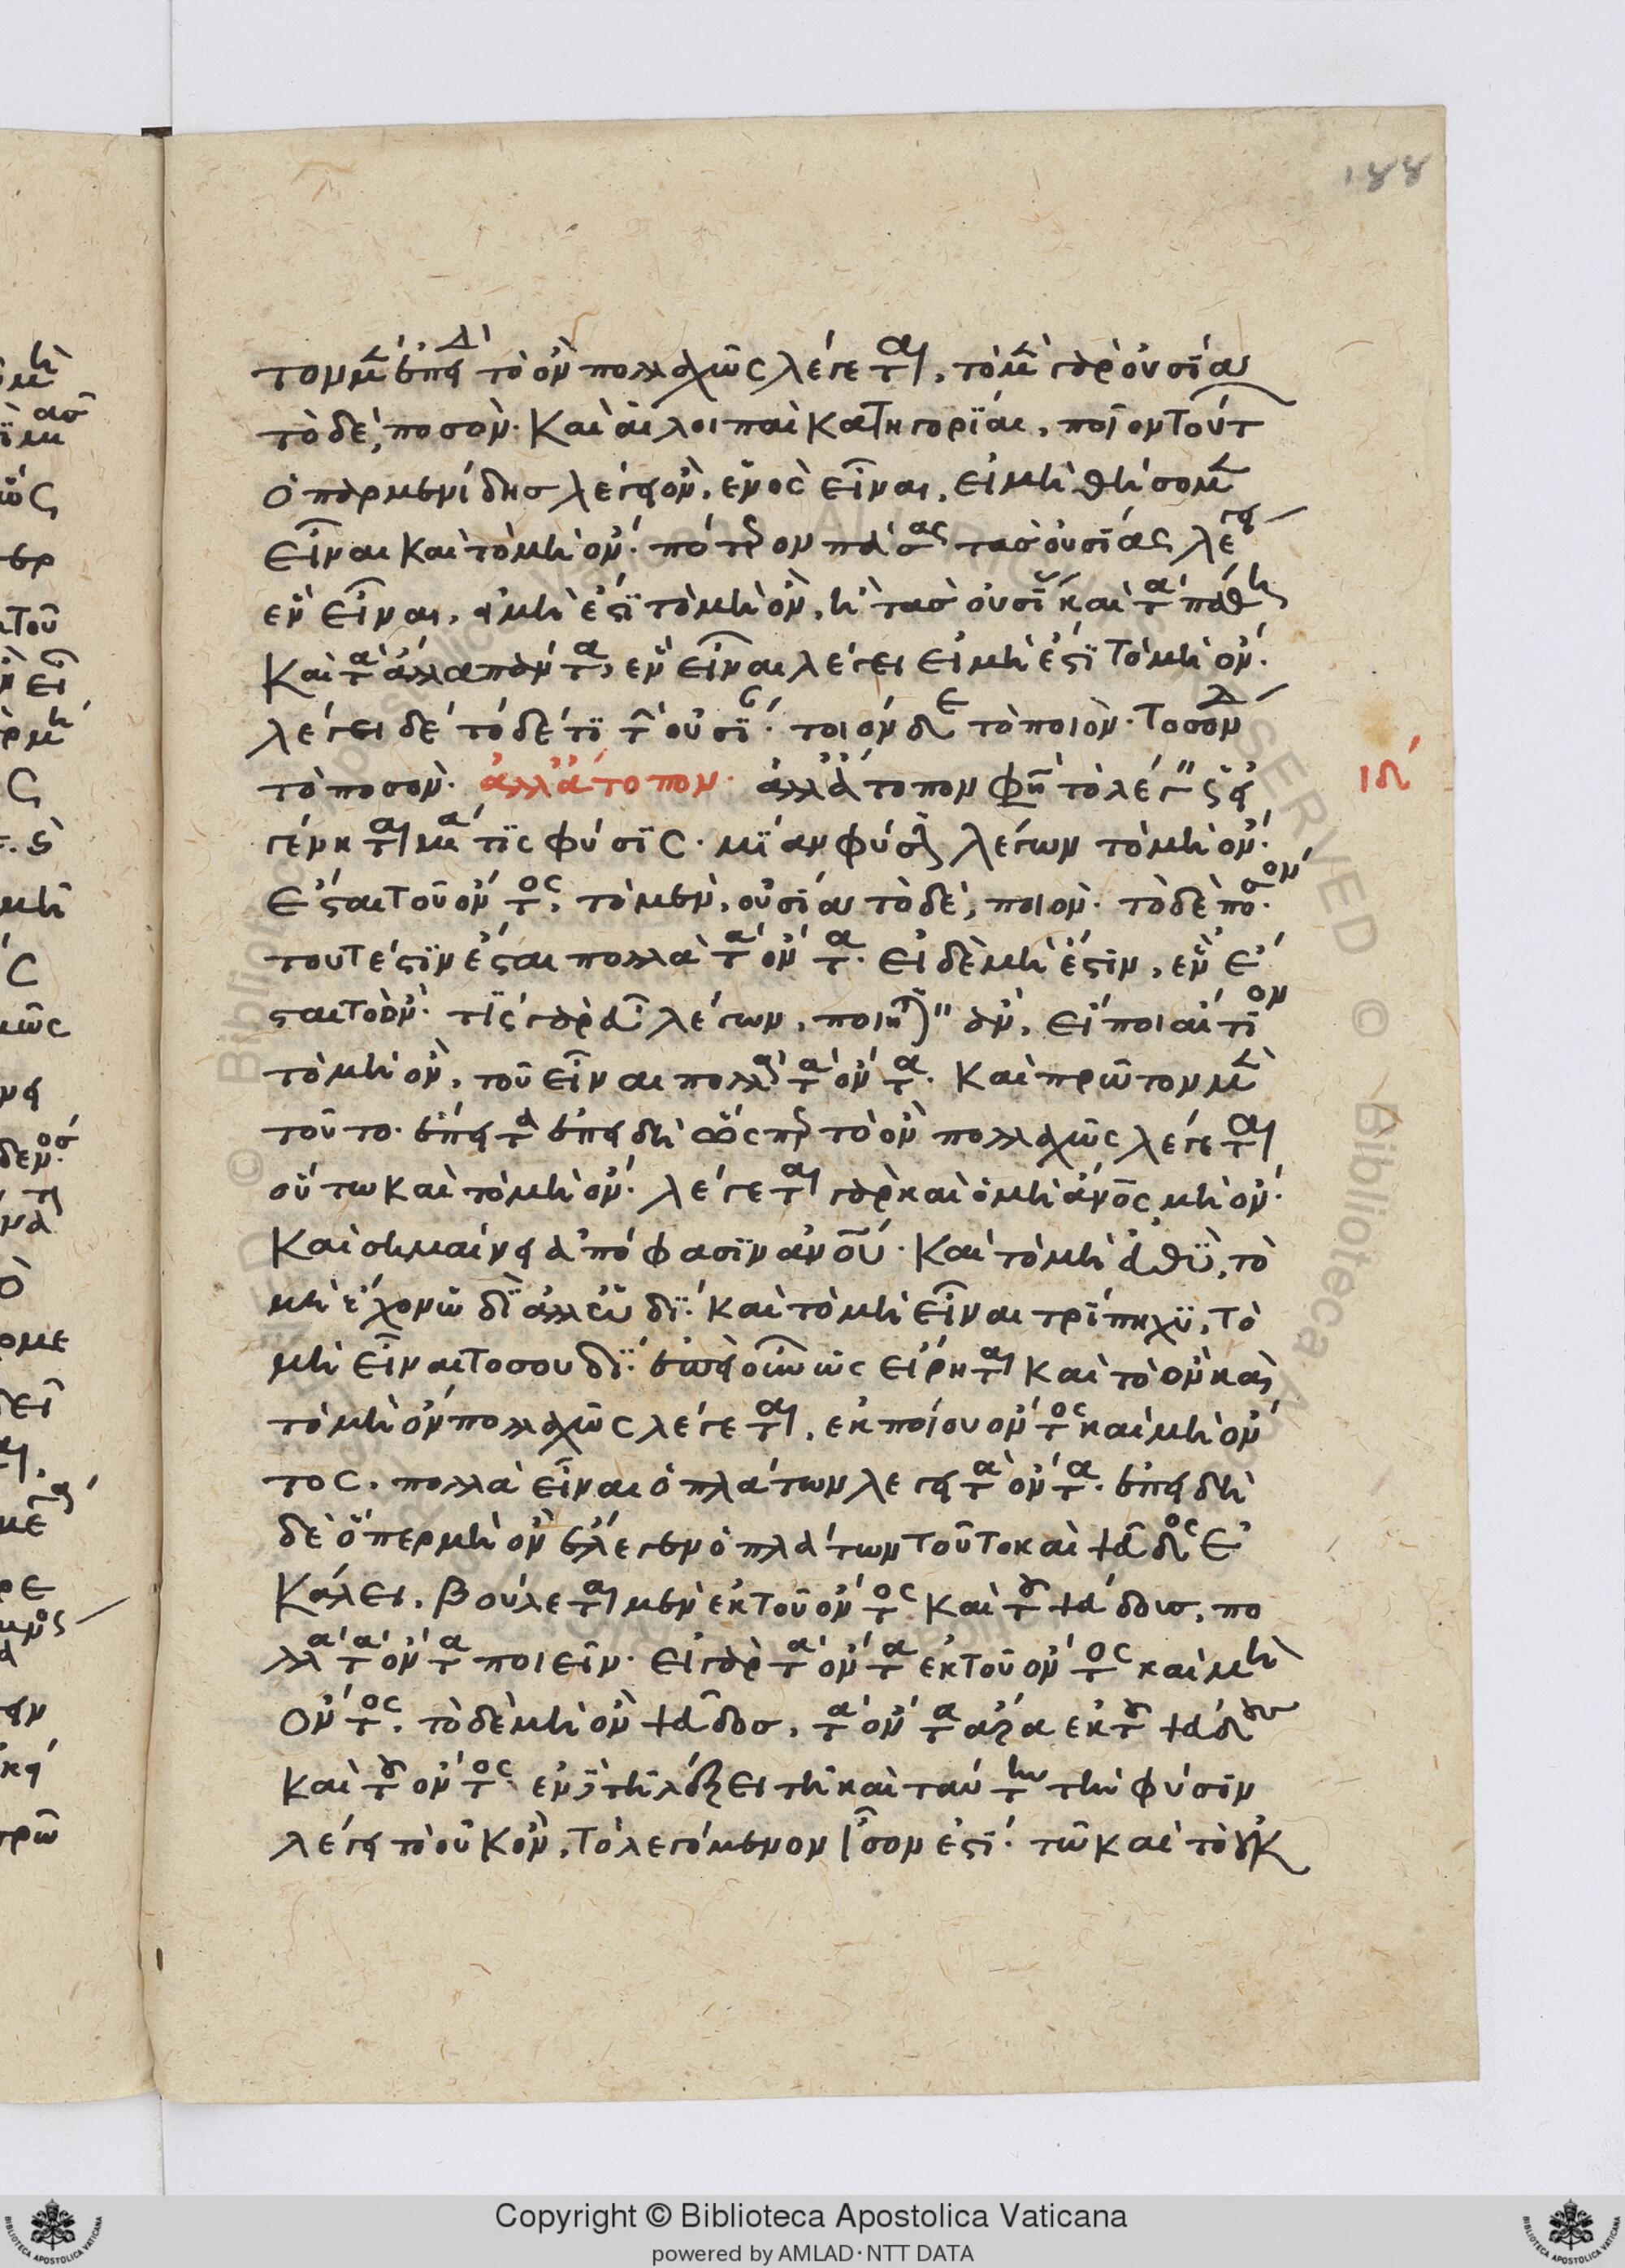 188
τον μὲν ἐπειδὴ τὸ ὂν πολλαχῶς λέγεται, τὸ μὲν γὰρ οὐσίαν
τὸ δὲ, ποσόν. καὶ αἱ λοιπαὶ κατηγορίαι, ποῖον τοῦτο
ὁ παρμενίδης λέγει ὂν, ἑνὸς εἶναι, εἰ μὴ θήσομεν
εἶναι καὶ τὸ μὴ ὄν. πότερον πάσας τὰς οὐσίας λέγει
ἓν εἶναι, εἰ μὴ ἔστι τὸ μὴ ὂν, ἢ τὰς οὐσίας καὶ τὰ πάθη
καὶ τὰ ἄλλα πάντα, ἓν εἶναι λέγει εἰ μὴ ἔστι τὸ μὴ ὄν.
λέγει δὲ τόδε τι τὴν οὐσίαν. τοιόνδε τὸ ποιὸν. τοσόνδε
τὸ ποσὸν. ἀλλ' ἄτοπον. ἀλλ' ἄτοπον φησὶ τὸ λέγειν ὅτι εἰ
γένηται μία τις φύσις. μίαν φύσιν λέγων τὸ μὴ ὄν.
ἔσται τοῦ ὄντος, τὸ μὲν, οὐσίαν τὸ δὲ, ποιόν. τὸ δὲ ποσόν.
τουτέστιν ἔσται πολλὰ τὰ ὄντα. εἰ δὲ μὴ ἔστιν, ἓν ἔ
σται τὸ ὄν. τίς γὰρ
τὸ μὴ ὂν, τοῦ εἶναι πολλὰ τὰ ὄντα. καὶ πρῶτον μὲν
τοῦτο. ἔπειτα ἐπειδὴ ὥσπερ τὸ ὂν πολλαχῶς λέγεται
οὕτω καὶ τὸ μὴ ὄν. λέγεται γὰρ καὶ ὁ μὴ ἄνος μὴ ὄν.
καὶ σημαίνει ἀπόφασιν ἀνου. καὶ τὸ μὴ εὐθὺ, τὸ
μὴ ἔχον ὡδὶ ἀλλ' ὡδί. καὶ τὸ μὴ εἶναι τρίπηχυ, τὸ
μὴ εἶναι τοσουδί. ἐπεὶ οὖν ὡς εἴρηται καὶ τὸ ὂν καὶ
τὸ μὴ ὂν πολλαχῶς λέγεται, ἐκ ποίου ὄντος καὶ μὴ ὄν
τος, πολλὰ εἶναι ὁ πλάτων λέγει τὰ ὄντα. ἐπειδὴ
δὲ ὅπερ μὴ ὂν ἔλεγεν ὁ πλάτων τοῦτο καὶ ψεῦδος ἐ
κάλει, βούλεται μὲν ἐκ τοῦ ὄντος καὶ τοῦ ψεύδους, πο
λλὰ τὰ ὄντα ποιεῖν. εἰ γὰρ τὰ ὄντα ἐκ τοῦ ὄντος καὶ μὴ
ὄντος, τὸ δὲ μὴ ὂν ψεῦδος, τὰ ὄντα ἄρα ἐκ τοῦ ψεύδους
καὶ τοῦ ὄντος. ἐν δὲ τῇ λέξει τῇ καὶ ταύτην τὴν φύσιν
λέγει τὸ οὐκ ὂν, τὸ λεγόμενον ἶσον ἐστί. τῶ καὶ τὸ οὐκ
ιδ´